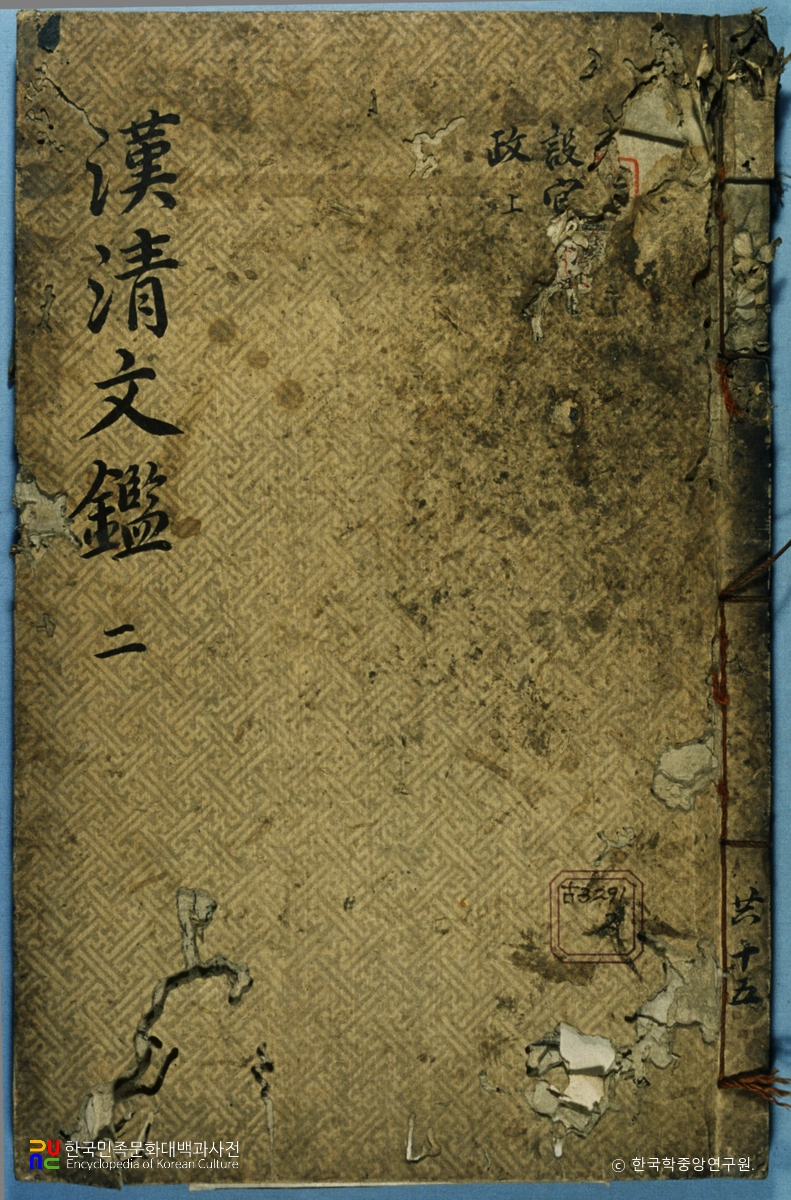 漢清文鑑 二
設官
政 上
古3291
共十五
한국민족문화대백과사전
Encyclopedia of Korean Culture
© 한국학중앙연구원